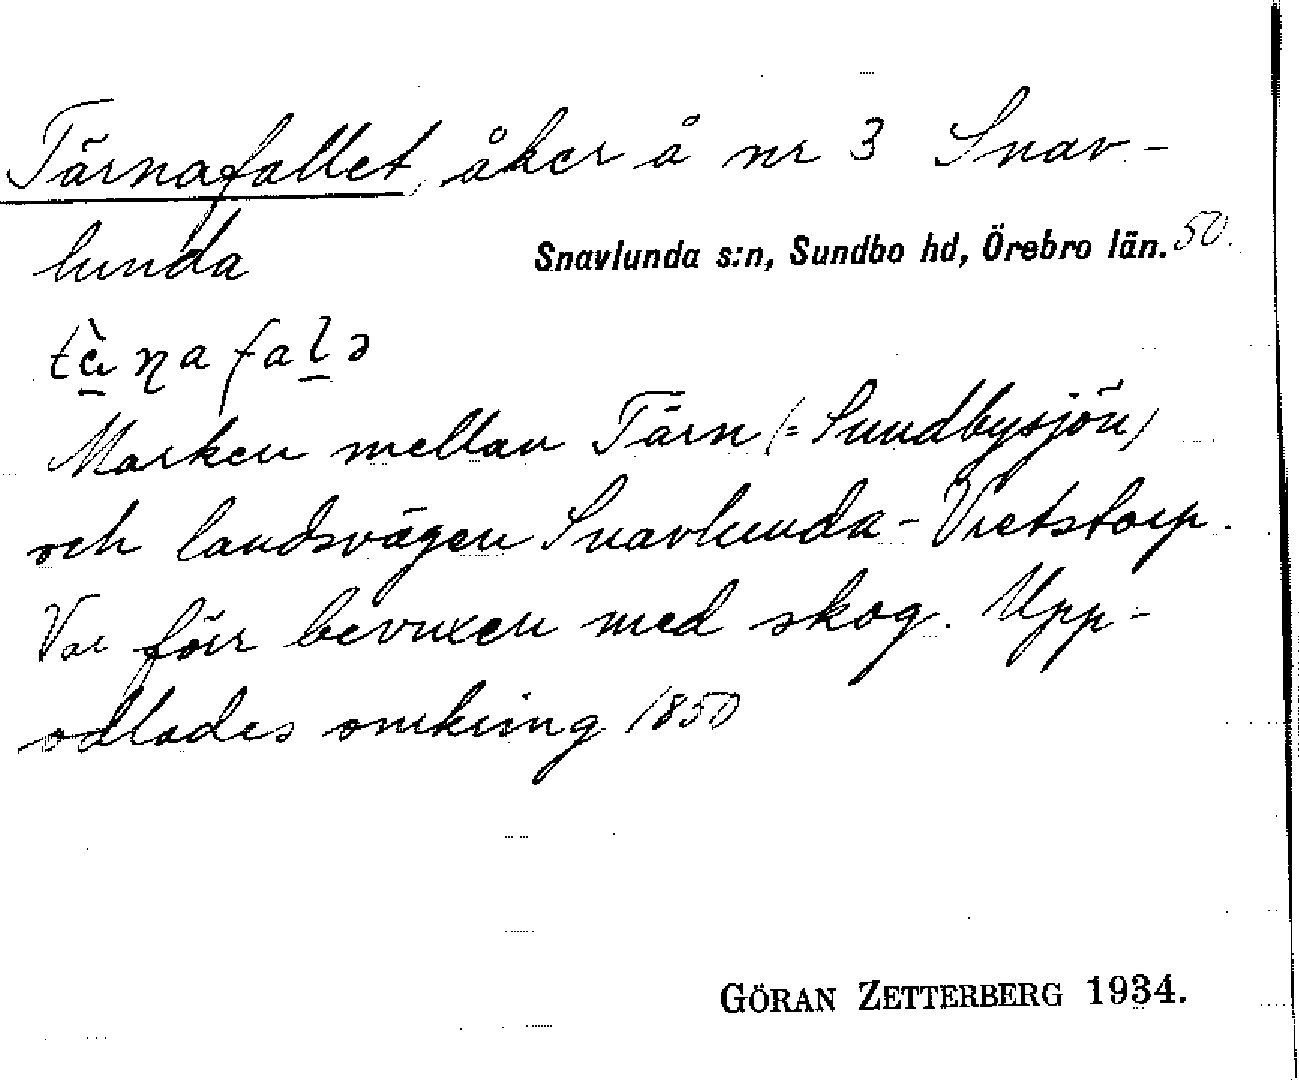 Tärnafallet, åker å nr 3 Snav-
lunda Snavlunda s:n, Sundbo hd, Örebro län. 50.
tæ̀ɳafalə
Marken mellan Tärn (= Sundbysjön)
och landsvägen Snavlunda - Vretstorp.
Var förr bevuxen med skog. Upp-
odlades omkring 1850
GÖRAN ZETTERBERG 1934.